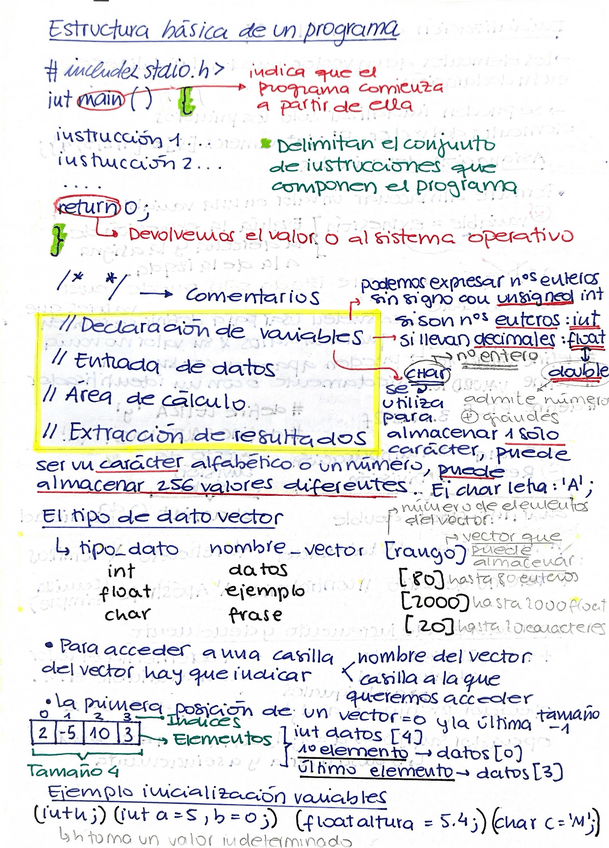 Estructura básica de un programa
# include<stdio.h>
int main ( ) {
indica que el
programa comienza
a partir de ella
instrucción 1 ...
instrucción 2 ...
....
* Delimitan el conjunto
de instrucciones que
componen el programa
return 0;
}
Devolvemos el valor 0 al sistema operativo
/* */ → comentarios
podemos expresar nºs enteros
sin signo con unsigned int
// Declaración de variables
// Entrada de datos
// Area de cálculo
// Extracción de resultados
si son nºs enteros : int
si llevan decimales : float
double
admite número
⊕ grandes
char → nº entero
se
utiliza
para
almacenar 1 solo
carácter, puede
ser un carácter alfabético o un número, puede
almacenar 256 valores diferentes. Ej char letra: 'A';
El tipo de dato vector
número de elementos
del vector
vector que
puede
almacenar:
↳ tipo_dato nombre_vector [rango]
int datos [80] hasta 80 enteros
float ejemplo [2000] hasta 2000 float
char frase [20] hasta 20 caracteres
• Para acceder a una casilla
del vector hay que indicar
nombre del vector
casilla a la que
queremos acceder
• La primera posición de un vector=0 y la última tamaño -1
0 1 2 3 → Índices
2 -5 10 3 → Elementos
Tamaño 4
int datos [4]
1º elemento → datos [0]
último elemento → datos [3]
Ejemplo inicialización variables
(int h;) (int a = 5, b = 0;) (float altura = 5.4;) (char c = 'M';)
↳ h toma un valor indeterminado